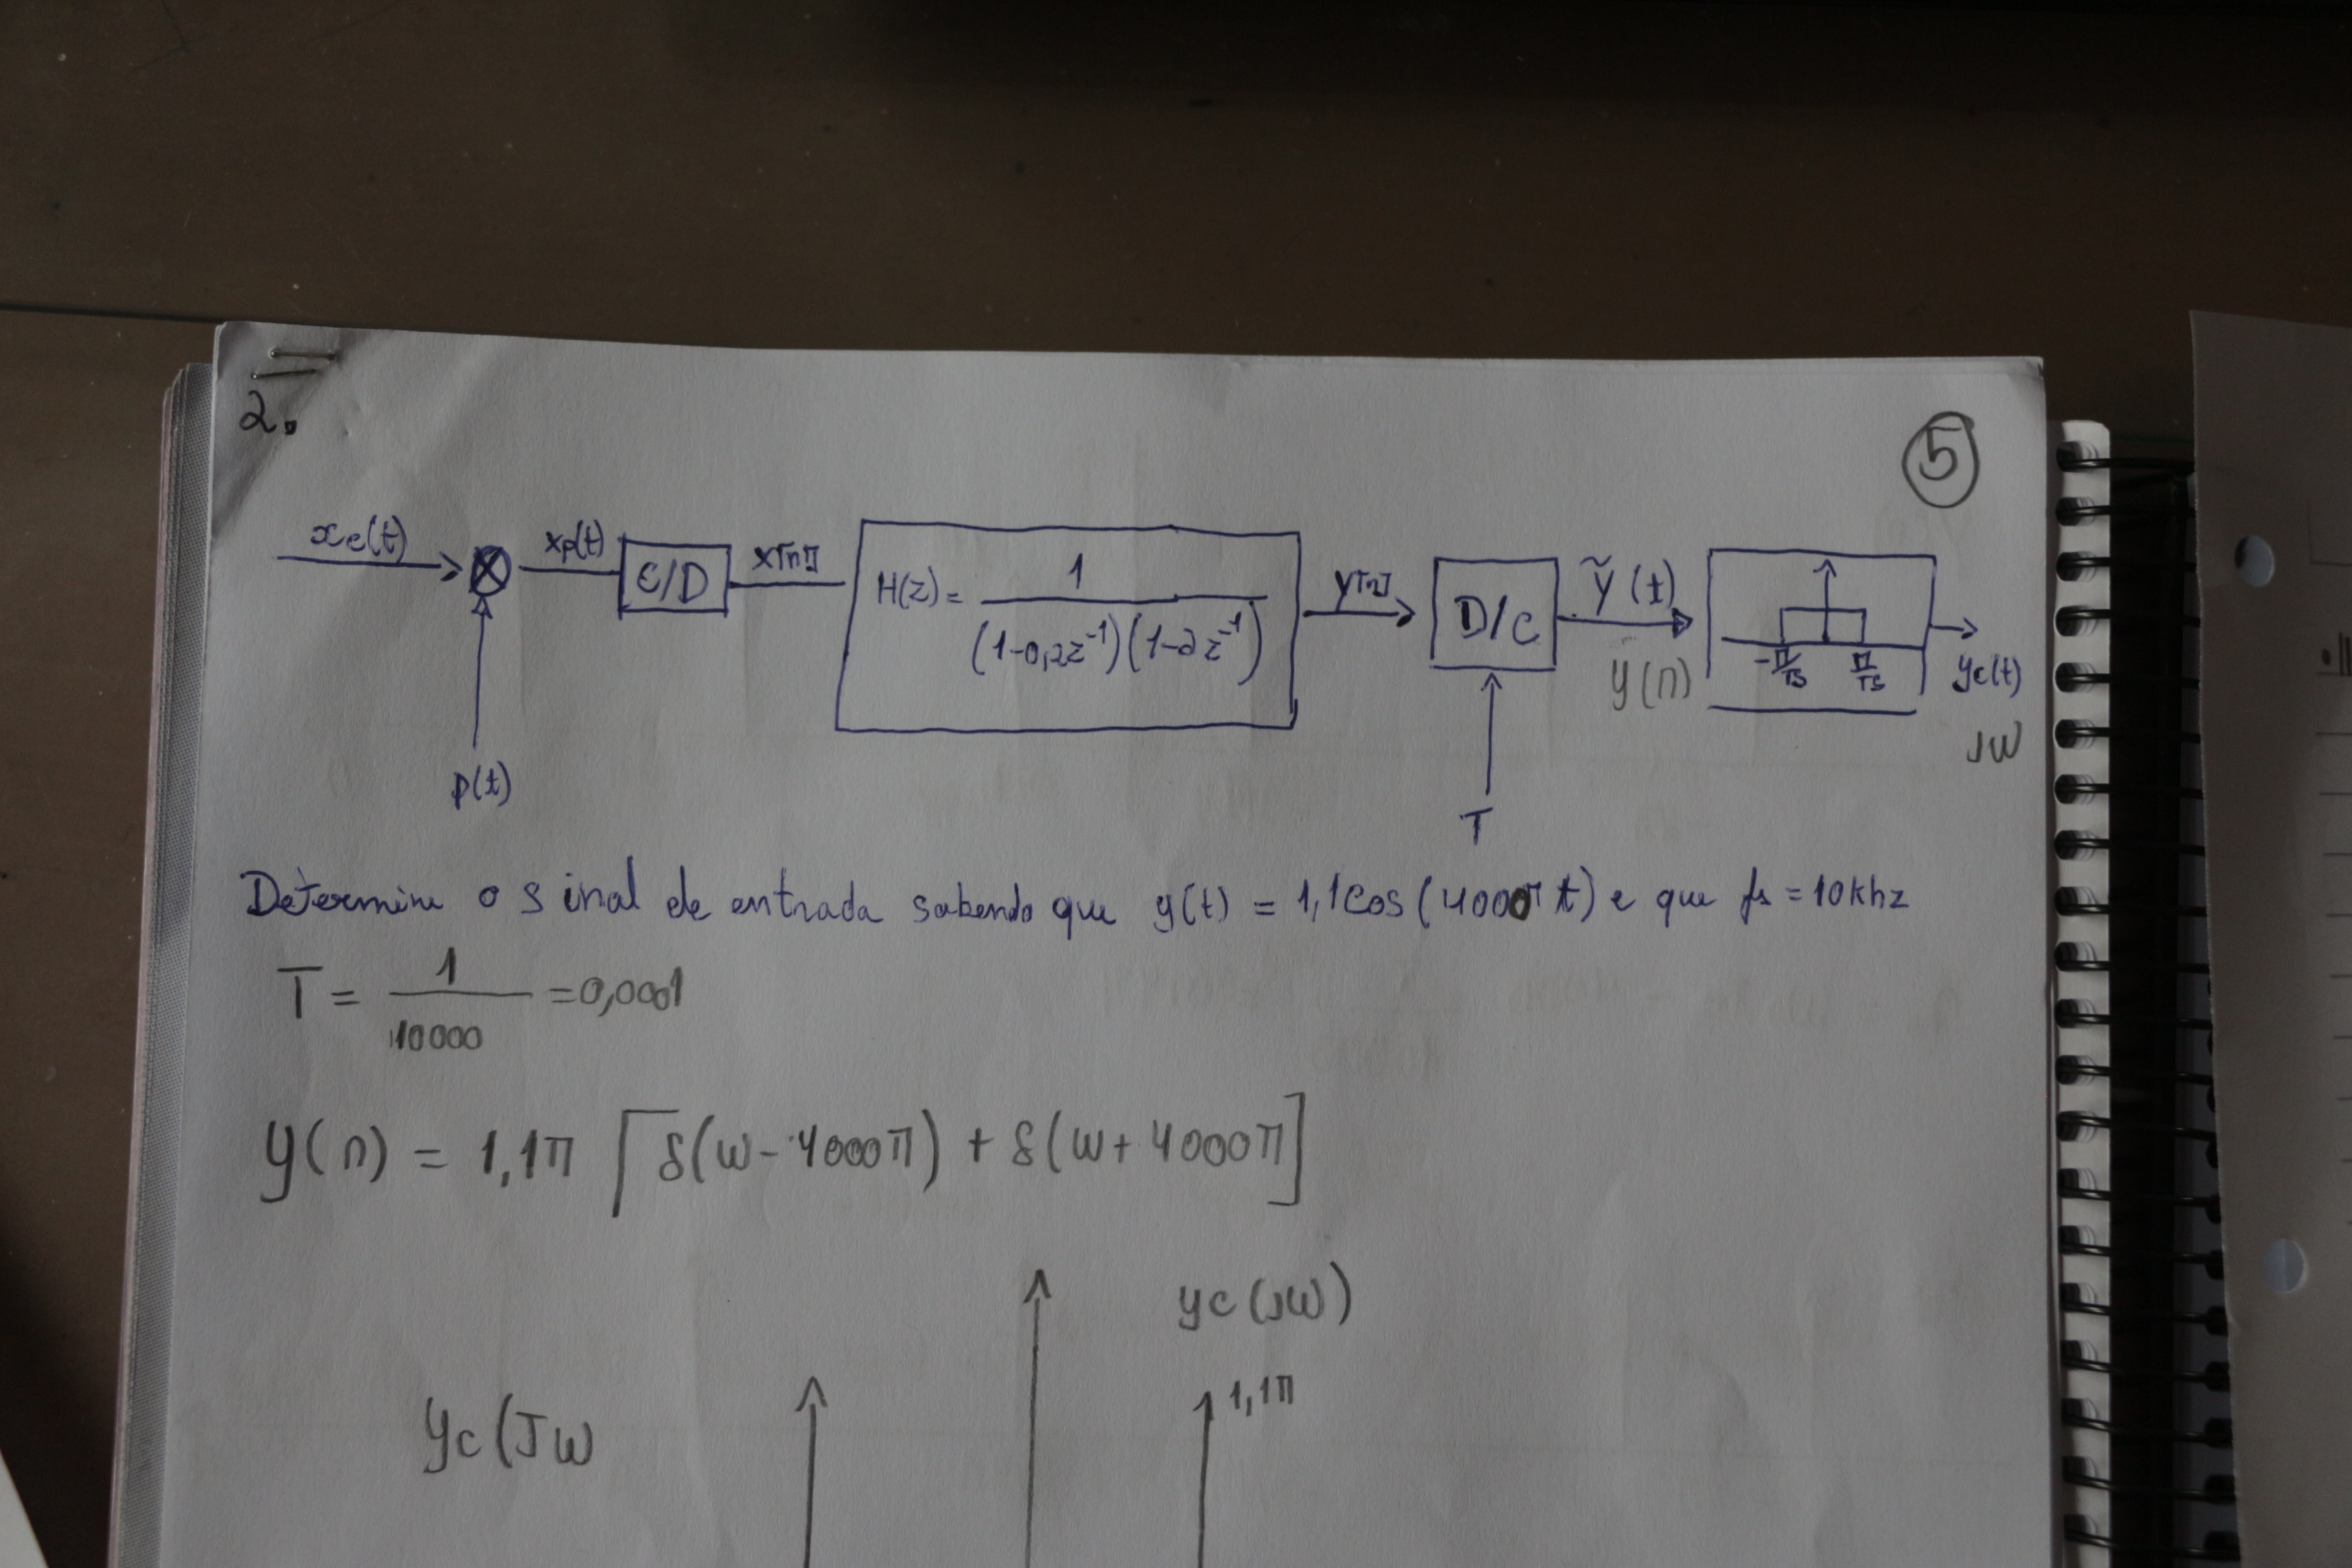 2.
5
xc(t)
xp(t)
C/D
x[n]
H(z) = 1 / (1-0,2z⁻¹)(1-2z⁻¹)
y[n]
D/C
ỹ(t)
y(n)
-π/Ts π/Ts
yc(t)
jw
p(t)
T
Determine o sinal de entrada sabendo que y(t) = 1,1cos(4000πt) e que fs = 10khz
T = 1 / 10000 = 0,0001
y(n) = 1,1π [δ(w-4000π) + δ(w+4000π]
yc(jw)
1,1π
yc(Jw